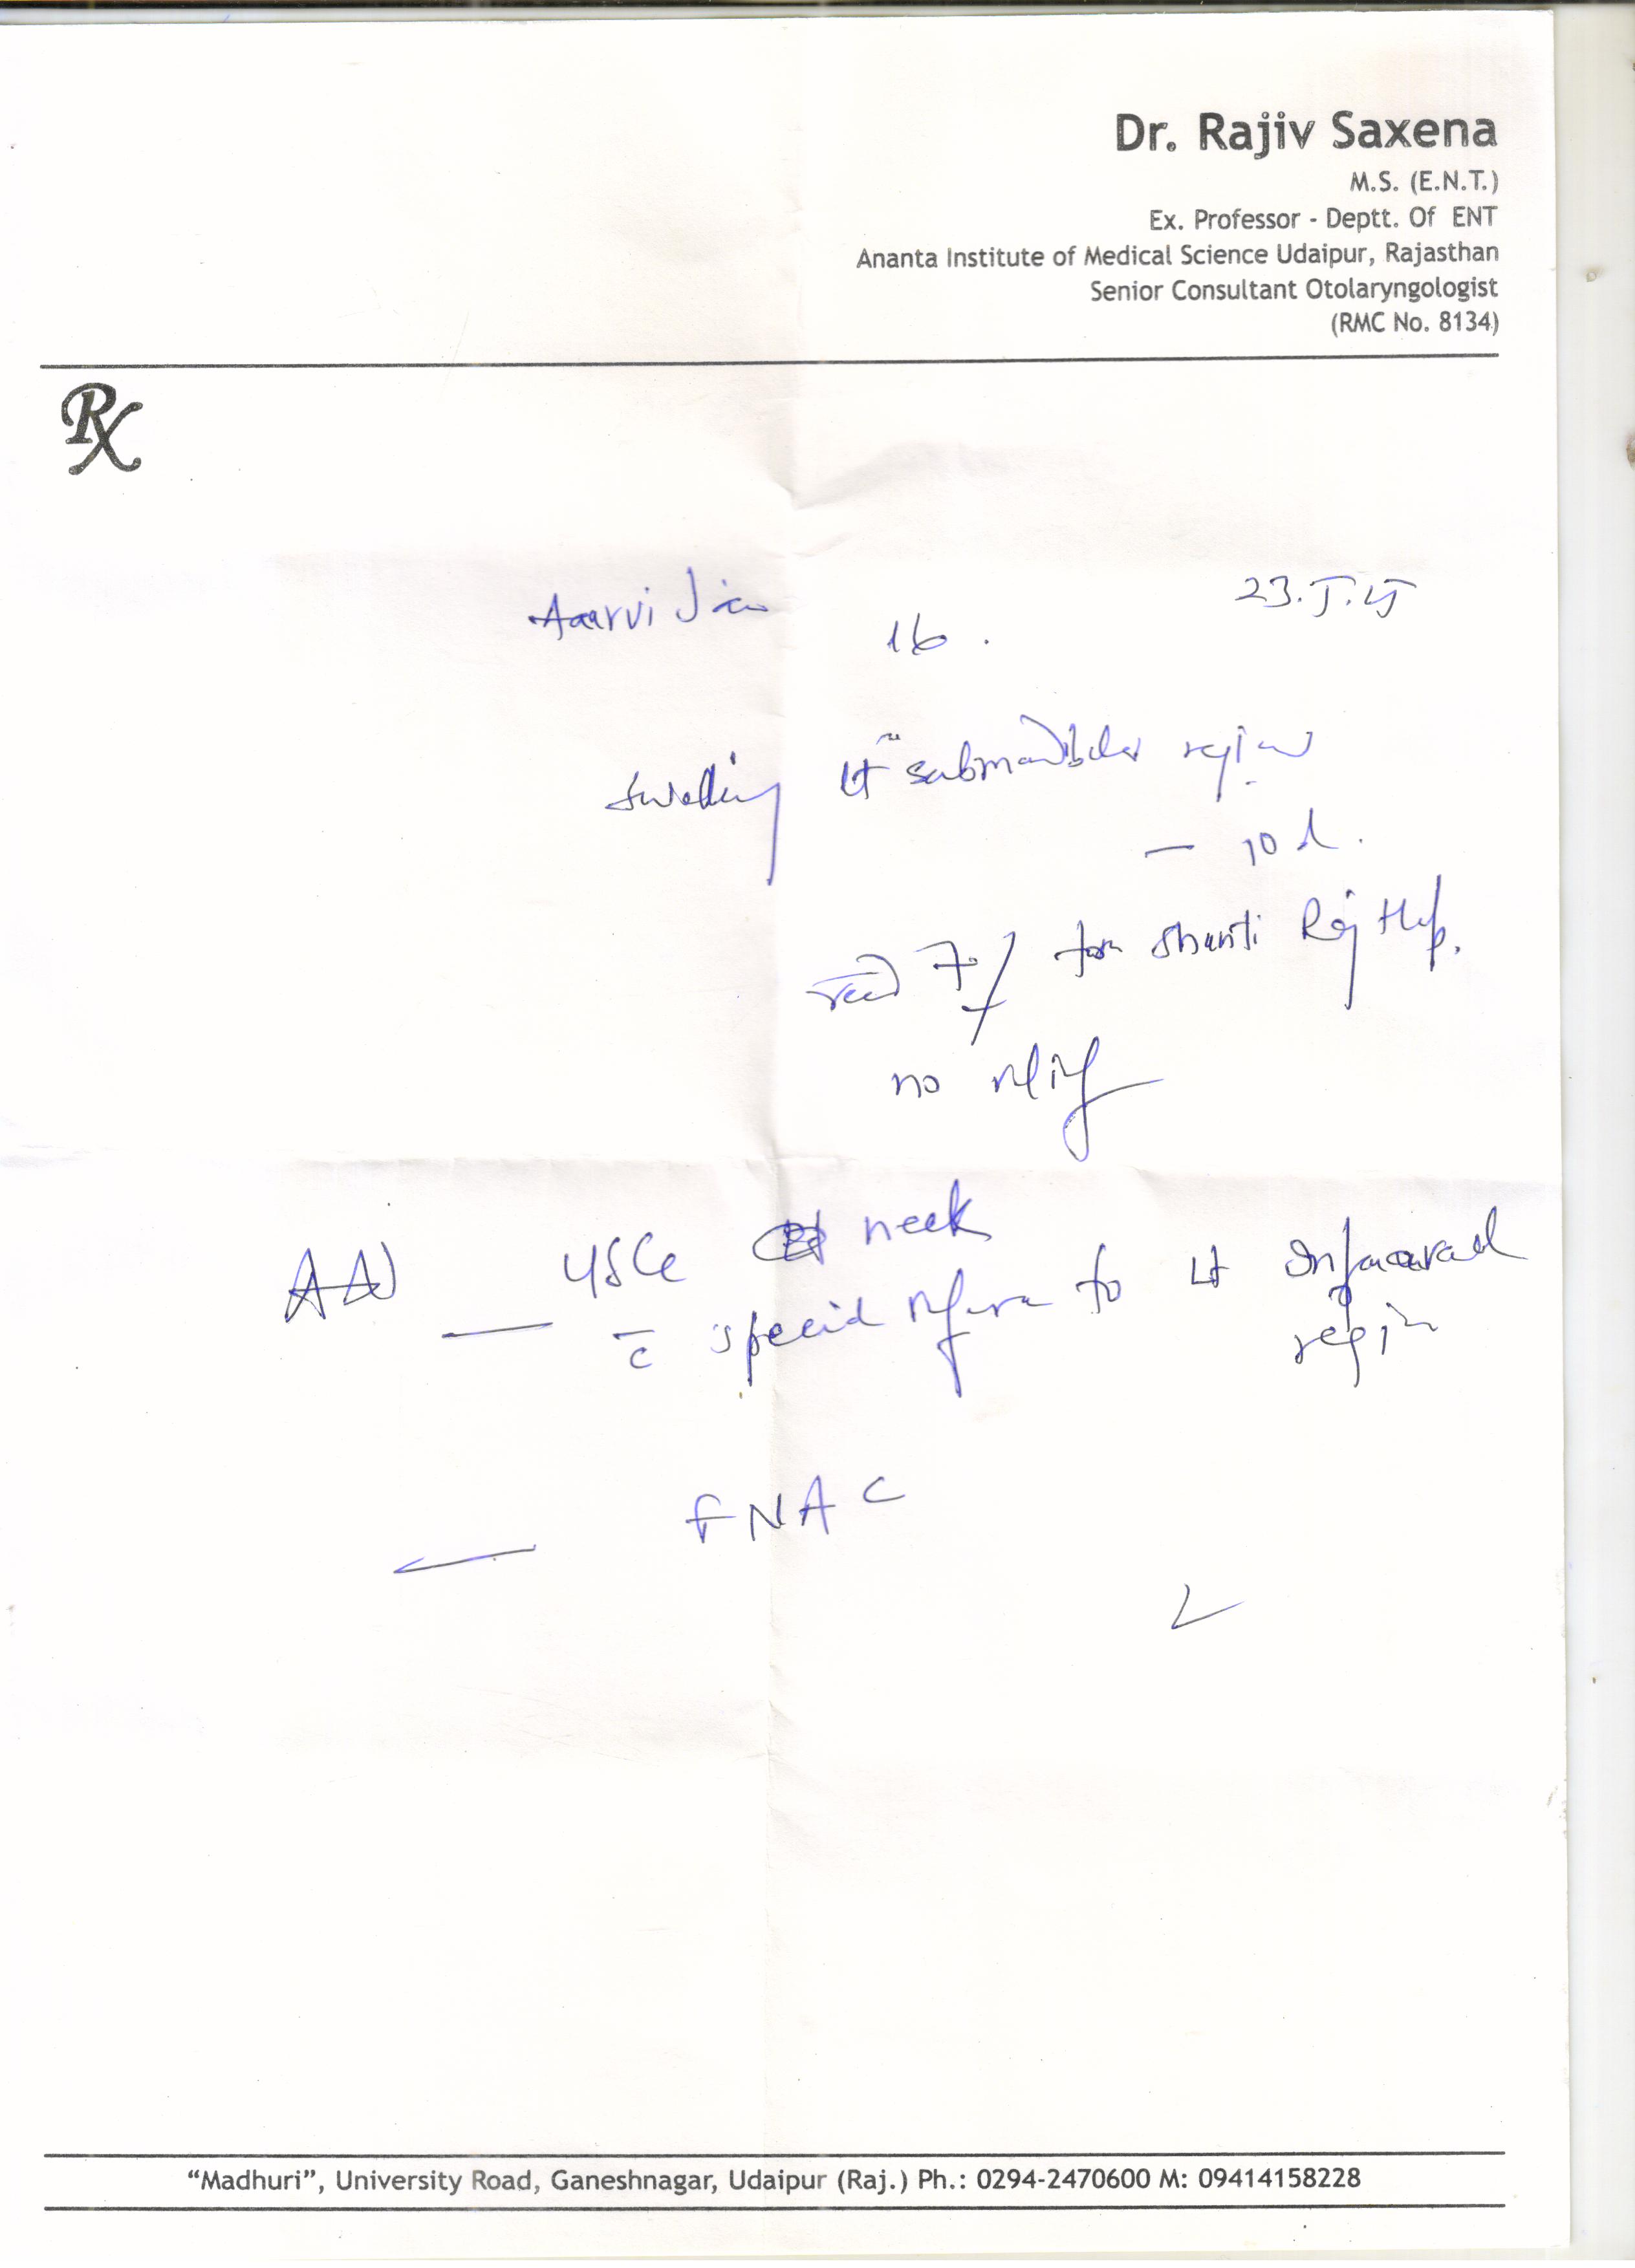 Dr. Rajiv Saxena
M.S. (E.N.T.)
Ex. Professor - Deptt. Of ENT
Ananta Institute of Medical Science Udaipur, Rajasthan
Senior Consultant Otolaryngologist
(RMC No. 8134)
Rx
Aarvi Jain
23.
16.
swelling Lt submandibular region
- 10 d.
from Shanti Raj Hosp.
no relief
Adv — USG neck
c̄ special reference to Lt
region
— FNAC
"Madhuri", University Road, Ganeshnagar, Udaipur (Raj.) Ph.: 0294-2470600 M: 09414158228